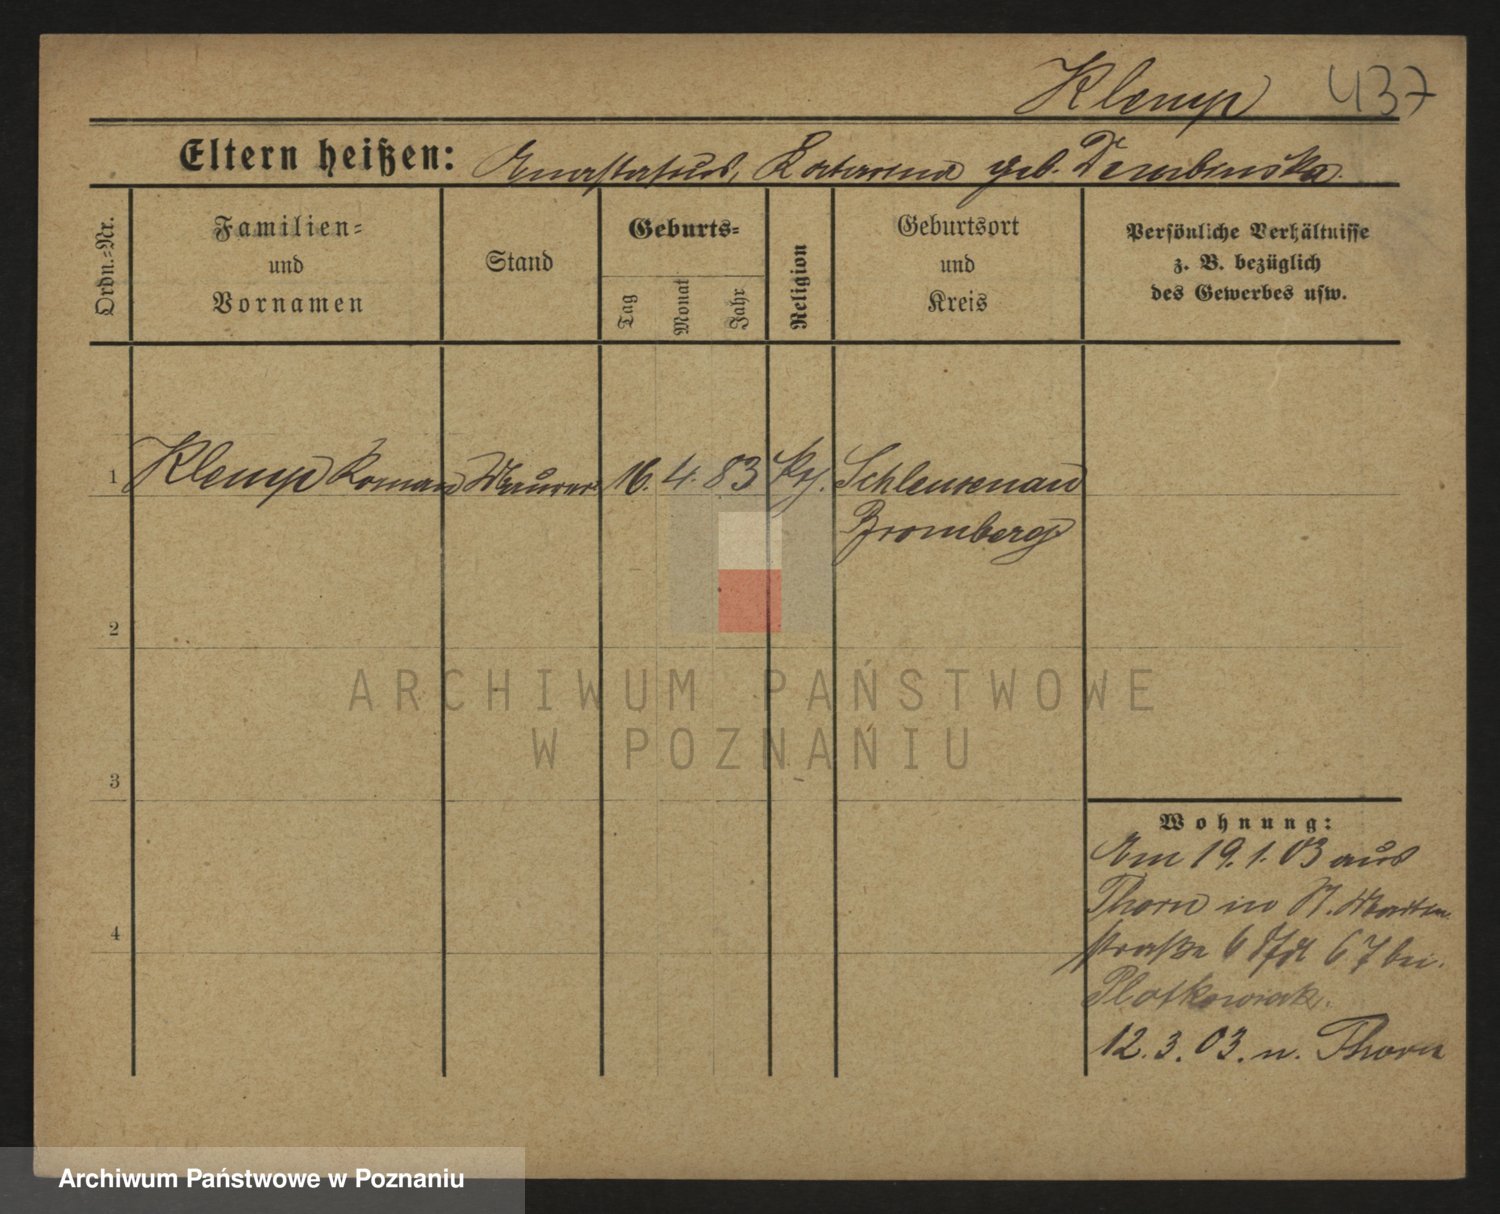 Klemp 437
Eltern heißen: Katarina geb. Dembinska.
Ordn.-Nr.
Familien-
und
Vornamen
Stand
Geburts-
Tag
Monat
Jahr
Religion
Geburtsort
und
Kreis
Persönliche Verhältnisse
z. B. bezüglich
des Gewerbes usw.
1 Klemp Roman Maurer 16. 4. 83 Schleusenau
Bromberg
2
ARCHIWUM PAŃSTWOWE
W POZNANIU
3
4
Wohnung:
19.1.03 aus
Thorn in St. Martin
straße 67 bei
Platkowiak.
12.3.03. n. Thorn
Archiwum Państwowe w Poznaniu